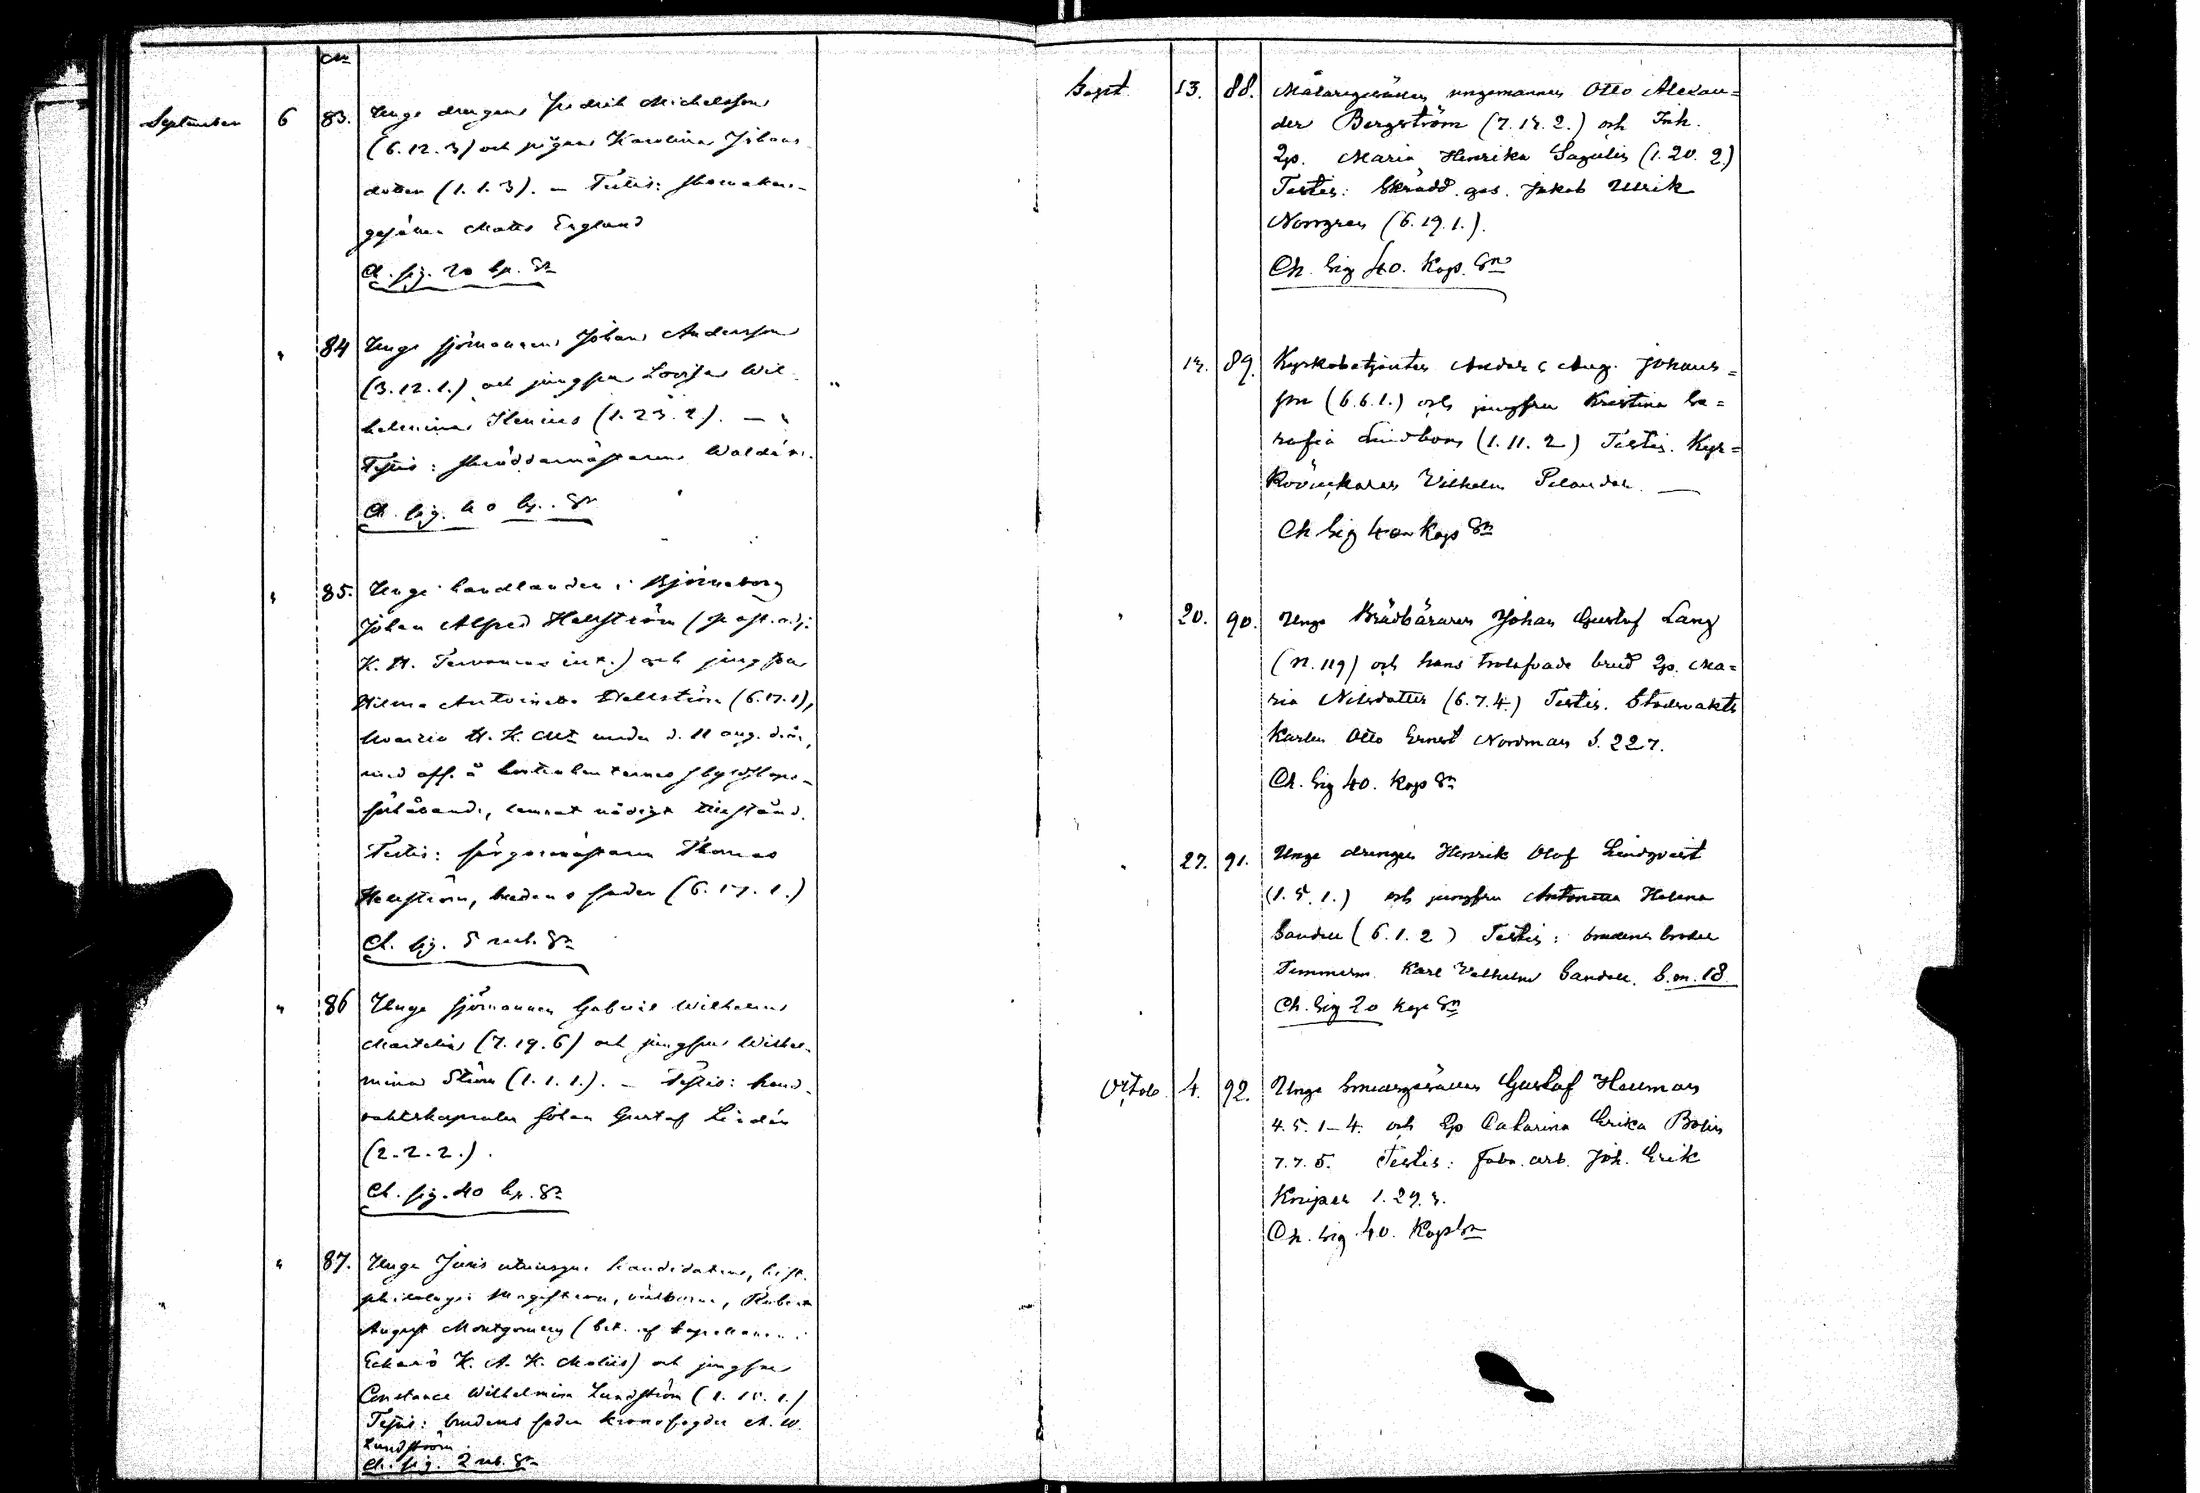 September 6 83. Unge drengen Fredrik Michelsson
(6.12.3) och pigan Karolina Johans
dotter (1.1.3). – Testis: skomakare-
gesällen Matts Englund
Ch. sig. 20 kp. Sr
" 84 Unge sjömannen Johan Andersson
(3.12.1.) och jungfru Lovisa Wil-
helmina Ilenius (1.23.2). –
Testis: skräddarmästaren Waldén.
Ch. sig. 40 kp. Sr
" 85. Unge handlanden i Björneborg
Johan Alfred Hellström
K. H. int.) och jungfru
Hilma Antoinette Hellström (6.17.1),
H. K. M:t under d. 11 aug. d. år,
med aff. å kontrahenternas skyldskaps-
förhållande, lemnat nådigt tillstånd.
Testis: färgaremästaren Thomas
Hellström, brudens fader (6.17.1.)
Ch. sig. 5 rub. Sr
" 86 Unge sjömannen Gabriel Wilhelm
Martelin (7.19.6) och jungfru Wilhel-
mina Ström (1.1.1.). – Testis: hand-
Johan Gustaf Lindén
(2.2.2.).
Ch. sig. 40 kp. Sr
" 87. Unge Juris utriusque kandidaten, hist.
philologie Magistern, välborne, Robert
August Montgomery (bet. af kapellanen i
Eckerö K. A. H. Malin) och jungfru
Constance Wilhelmina Lundström (1.15.1.)
Testis: brudens fader kronofogden A. W.
Lundström.
Ch. sig. 2 rub. Sr
Sept. 13. 88. Målaregesällen ungemannen Otto Alexan=
der Bergström (7.15.2.) och Inh.
Qp. Maria Henrika Sagulin (1.20.2.)
Testis: Skrädd. ges. Jakob Ulrik
Norrgren (6.19.1.).
Ch. Sig 40. Kop. Sr
14. 89. Kyrkobetjenten Anders Aug. Johans=
son (6.6.1.) och jungfru Kristina Se=
rafia Lindbom (1.11.2) Testis. Kyr=
Kovänkaren Vilhelm Pelander. —
Ch Sig 40 Kop Sr
" 20. 90. Unge Brädbäraren Johan Gustaf Lang
(n. 119) och hans trolofvade brud Qp. Ma=
ria Nilsdotter (6.7.4.) Testis. Stadsvakts
Karlen Otto Ernest Nordman S. 227.
Ch. Sig 40. Kop Sr
" 27. 91. Unge drengen Henrik Olof Lindqvist
(1.5.1.) och jungfru Antonetta Helena
Sandell (6.1.2) Testis: brudens broder
Timmerm. Karl Vilhelm Sandell. S.m. 18
Ch. Sig 20 Kop Sr
Octob. 4. 92. Unge Smedsgesällen Gustaf Hellman
4.5.1–4. och Qp Catarina Erika Bolin
7.7.5. Testis: Fabr. arb. Joh. Erik
Kniper 1.29.3.
Ch. Sig 40. Kop Sr